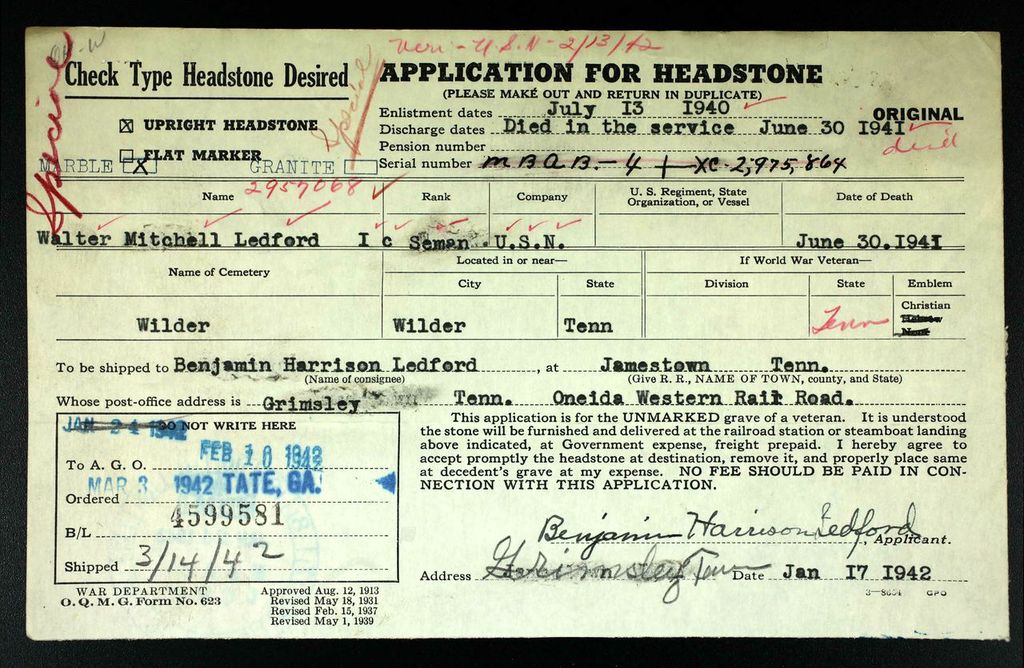 Veri - U.S.N - 2/13/42
Special
Special
Check Type Headstone Desired
☒ UPRIGHT HEADSTONE
☐ FLAT MARKER
MARBLE X GRANITE
APPLICATION FOR HEADSTONE
(PLEASE MAKE OUT AND RETURN IN DUPLICATE)
ORIGINAL
Enlistment dates July I3 I940
Discharge dates Died in the service June 30 I94I
Pension number
Serial number XC-2,975,864
2957068
Name Rank Company U. S. Regiment, State Organization, or Vessel Date of Death
Walter Mitchell Ledford I c Seman U.S.N. June 30.I94I
Name of Cemetery Located in or near— If World War Veteran—
City State Division State Emblem
Wilder Wilder Tenn Tenn Christian
Hebrew
None
To be shipped to Benjamin Harrison Ledford, at Jamestown Tenn.
(Name of consignee) (Give R. R., NAME OF TOWN, county, and State)
Whose post-office address is Grimsley Tenn. Oneida Western Rail Road.
JAN 24 1942 DO NOT WRITE HERE
FEB 10 1942
To A. G. O.
MAR 3 1942 TATE, GA.
Ordered
4599581
B/L
Shipped 3/14/42
WAR DEPARTMENT
O. Q. M. G. Form No. 623
Approved Aug. 12, 1913
Revised May 18, 1931
Revised Feb. 15, 1937
Revised May 1, 1939
This application is for the UNMARKED grave of a veteran. It is understood
the stone will be furnished and delivered at the railroad station or steamboat landing
above indicated, at Government expense, freight prepaid. I hereby agree to
accept promptly the headstone at destination, remove it, and properly place same
at decedent's grave at my expense. NO FEE SHOULD BE PAID IN CON-
NECTION WITH THIS APPLICATION.
Benjamin Harrison Ledford, Applicant.
Address Grimsley Tenn Date Jan I7 I942
GPO